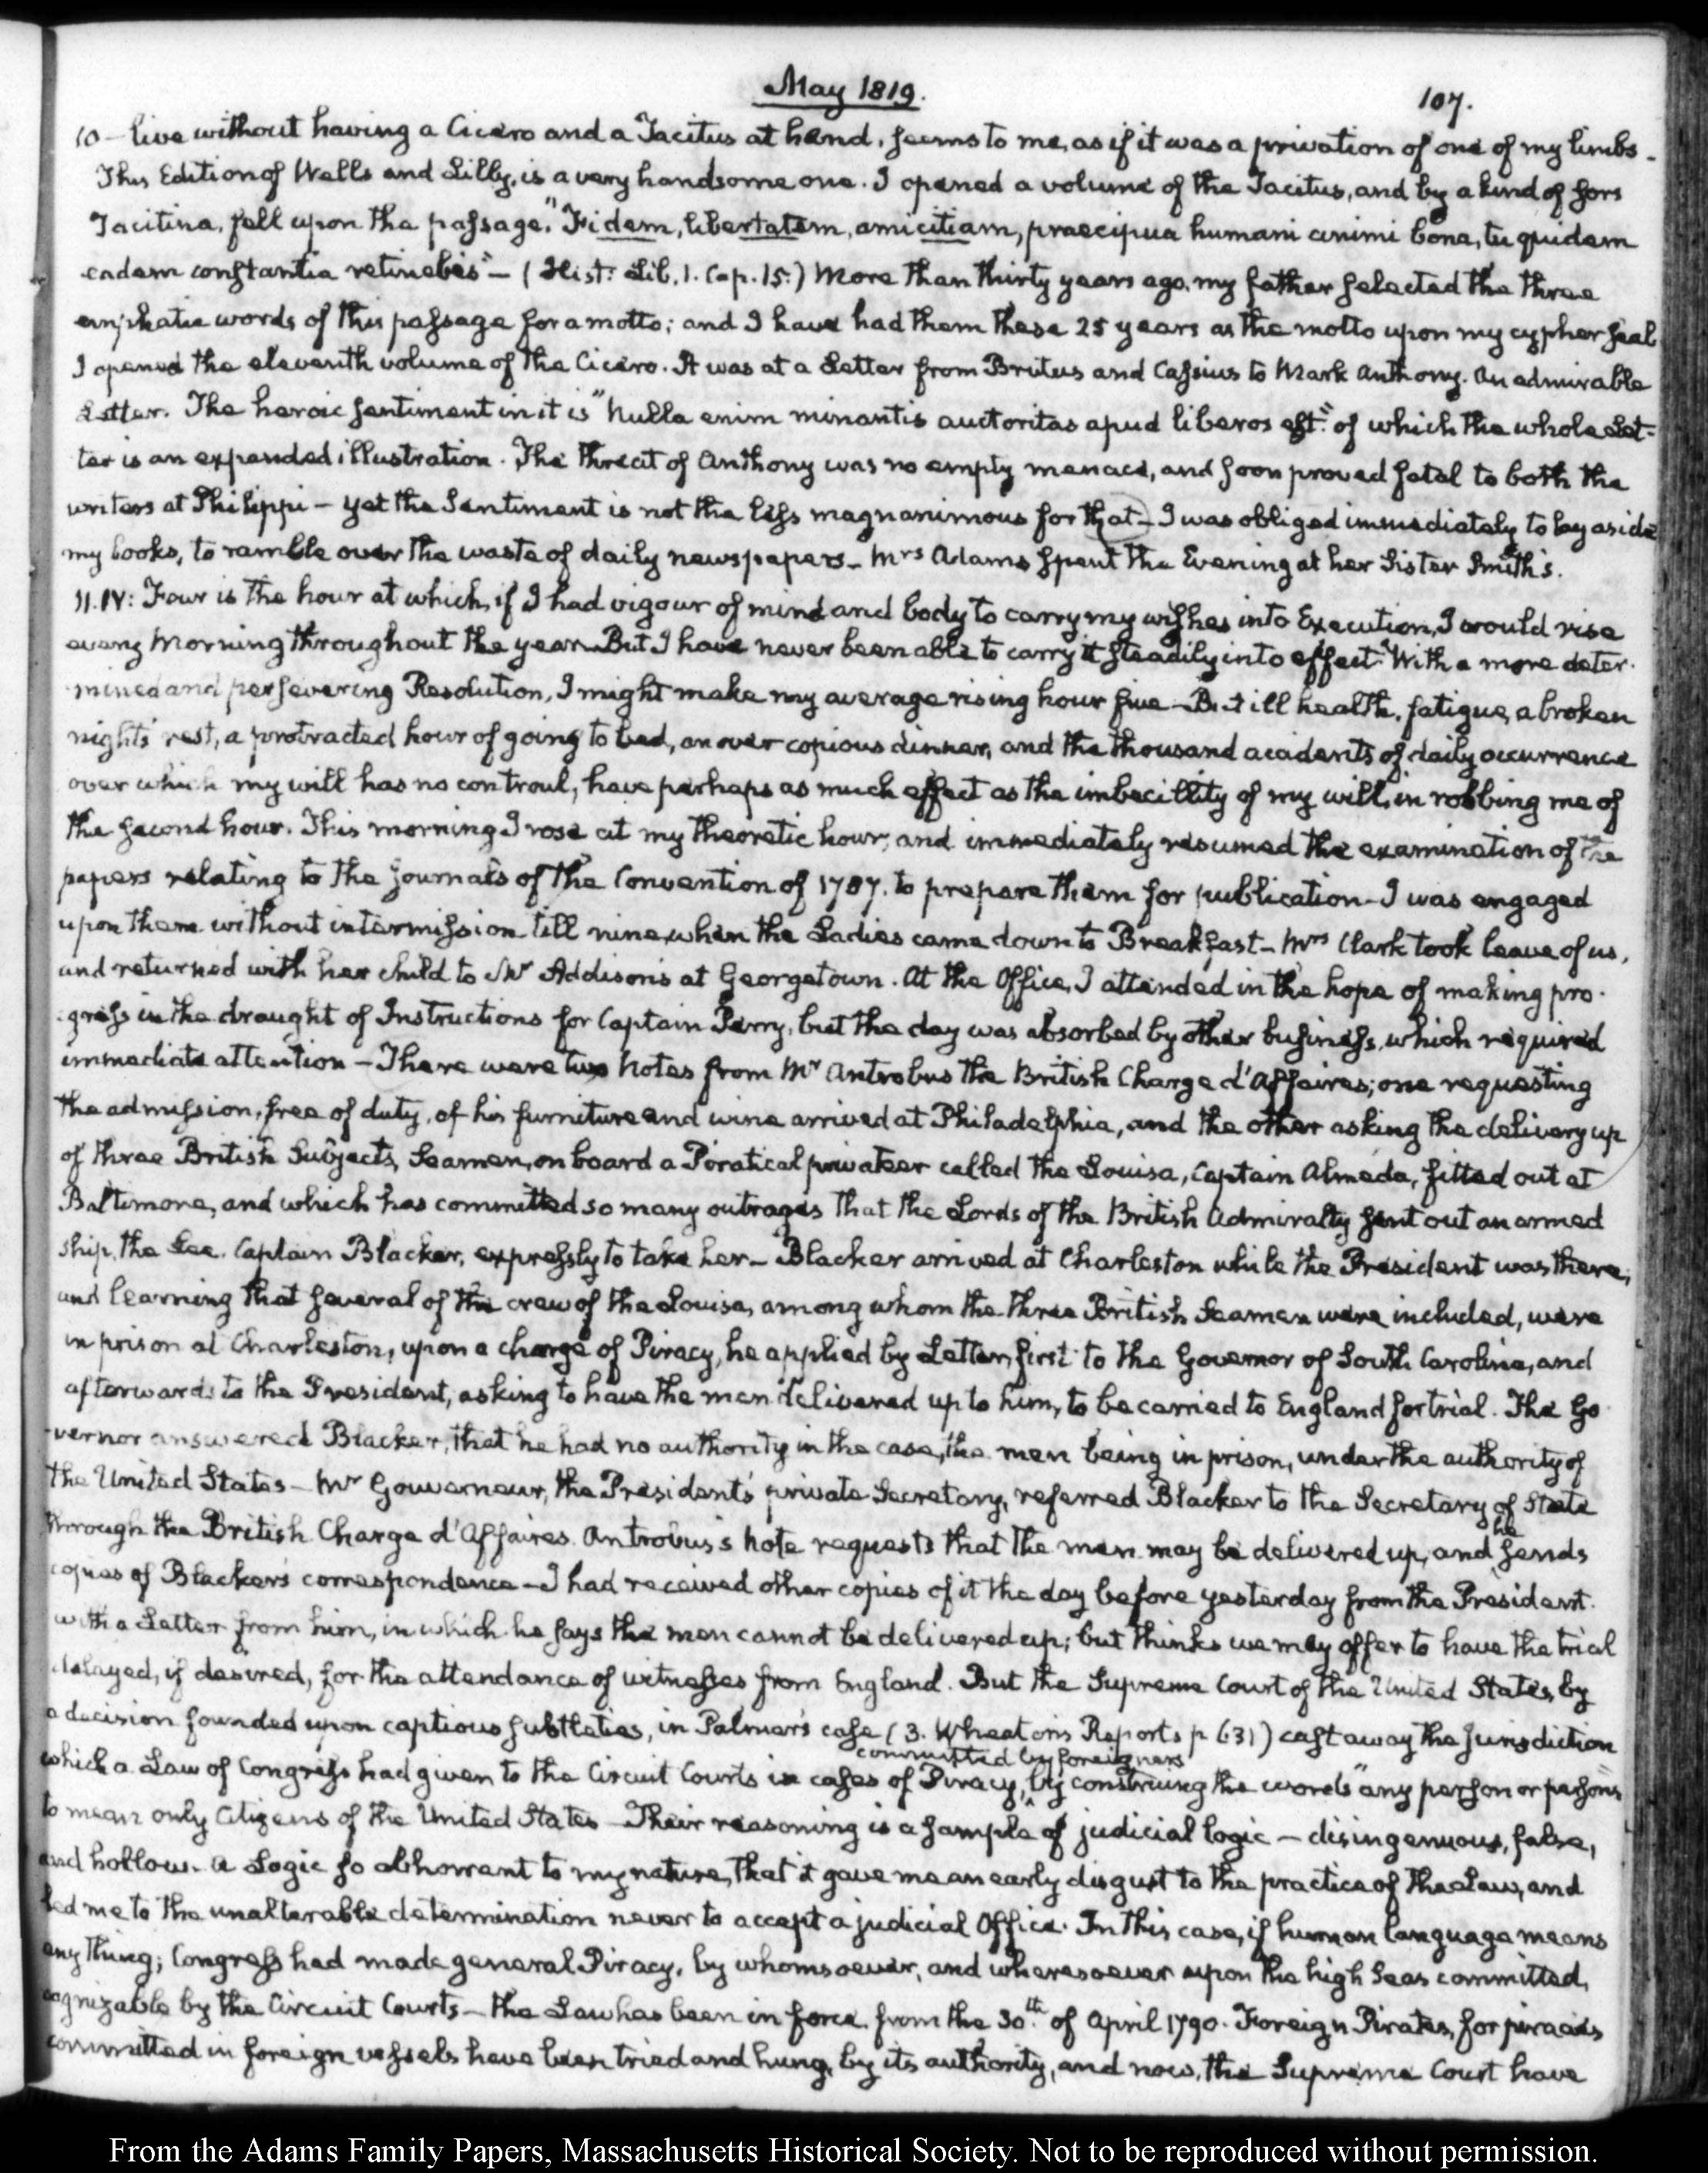 May 1819.
107.
10 — live without having a Cicero and a Tacitus at hand, seems to me, as if it was a privation of one of my limbs.
This Edition of Wells and Lilly, is a very handsome one. I opened a volume of the Tacitus, and by a kind of sors
Tacitina, fell upon the passage, "Fidem, libertatem, amicitiam, praecipua humani animi bona, tu quidem
eadem constantia retinebis" — (Hist: Lib. 1. Cap. 15.) More than thirty years ago, my father selected the three
emphatic words of this passage for a motto; and I have had them these 25 years as the motto upon my cypher seal
I opened the eleventh volume of the Cicero. It was at a Letter from Brutus and Cassius to Mark Anthony. An admirable
Letter. The heroic sentiment in it is "Nulla enim minantis auctoritas apud liberos est." of which the whole Let-
ter is an expanded illustration. The threat of Anthony was no empty menace, and soon proved fatal to both the
writers at Philippi — yet the Sentiment is not the less magnanimous for that — I was obliged immediately to lay aside
my books, to ramble over the waste of daily newspapers — Mrs Adams spent the Evening at her Sister Smith's.
11. IV: Four is the hour at which, if I had vigour of mind and body to carry my wishes into Execution, I would rise
every Morning throughout the year — But I have never been able to carry it steadily into effect. With a more deter-
mined and persevering Resolution, I might make my average rising hour five — But ill health, fatigue, a broken
nights' rest, a protracted hour of going to bed, an over copious dinner, and the thousand accidents of daily occurrence
over which my will has no controul, have perhaps as much effect as the imbecillity of my will, in robbing me of
the second hour. This morning I rose at my theoretic hour, and immediately resumed the examination of the
papers relating to the Journals of the Convention of 1787. to prepare them for publication — I was engaged
upon them without intermission till nine, when the Ladies came down to Breakfast — Mrs Clark took leave of us,
and returned with her child to Mr Addison's at Georgetown. At the Office, I attended in the hope of making pro-
gress in the draught of Instructions for Captain Perry, but the day was absorbed by other business, which required
immediate attention — There were two Notes from Mr Antrobus the British Charge d'Affaires; one requesting
the admission, free of duty, of his furniture and wine arrived at Philadelphia, and the other asking the delivery up
of three British Subjects, Seamen, on board a Piratical privateer called the Louisa, Captain Almeda, fitted out at
Baltimore, and which has committed so many outrages that the Lords of the British Admiralty sent out an armed
ship, the Lee. Captain Blacker, expressly to take her — Blacker arrived at Charleston while the President was there,
and learning that several of the crew of the Louisa, among whom the three British Seamen were included, were
in prison at Charleston, upon a charge of Piracy, he applied by Letter, first to the Governor of South Carolina, and
afterwards to the President, asking to have the men delivered up to him, to be carried to England for trial. The Go-
vernor answered Blacker, that he had no authority in the case, the men being in prison, under the authority of
the United States — Mr Gouverneur, the President's private Secretary, referred Blacker to the Secretary of State
through the British Charge d'Affaires. Antrobus's Note requests that the men may be delivered up, and he sends
copies of Blacker's correspondence — I had received other copies of it the day before yesterday from the President.
with a Letter from him, in which he says the men cannot be delivered up; but thinks we may offer to have the trial
delayed, if desired, for the attendance of witnesses from England. But the Supreme Court of the United States, by
a decision founded upon captious subtleties, in Palmer's case (3. Wheaton's Reports p 631) cast away the jurisdiction
which a Law of Congress had given to the Circuit Courts in cases of Piracy, committed by foreigners by construing the words "any person or persons"
to mean only Citizens of the United States — Their reasoning is a sample of judicial logic — disingenuous, false,
and hollow. A Logic so abhorrent to my nature, that it gave me an early disgust to the practice of the Law, and
led me to the unalterable determination never to accept a judicial Office. In this case, if human language means
any thing; Congress had made general Piracy, by whomsoever, and wheresoever upon the high Seas committed,
cognizable by the Circuit Courts — the Law has been in force from the 30th of April 1790. Foreign Pirates, for piracies
committed in foreign vessels have been tried and hung, by its authority, and now, the Supreme Court have
From the Adams Family Papers, Massachusetts Historical Society. Not to be reproduced without permission.